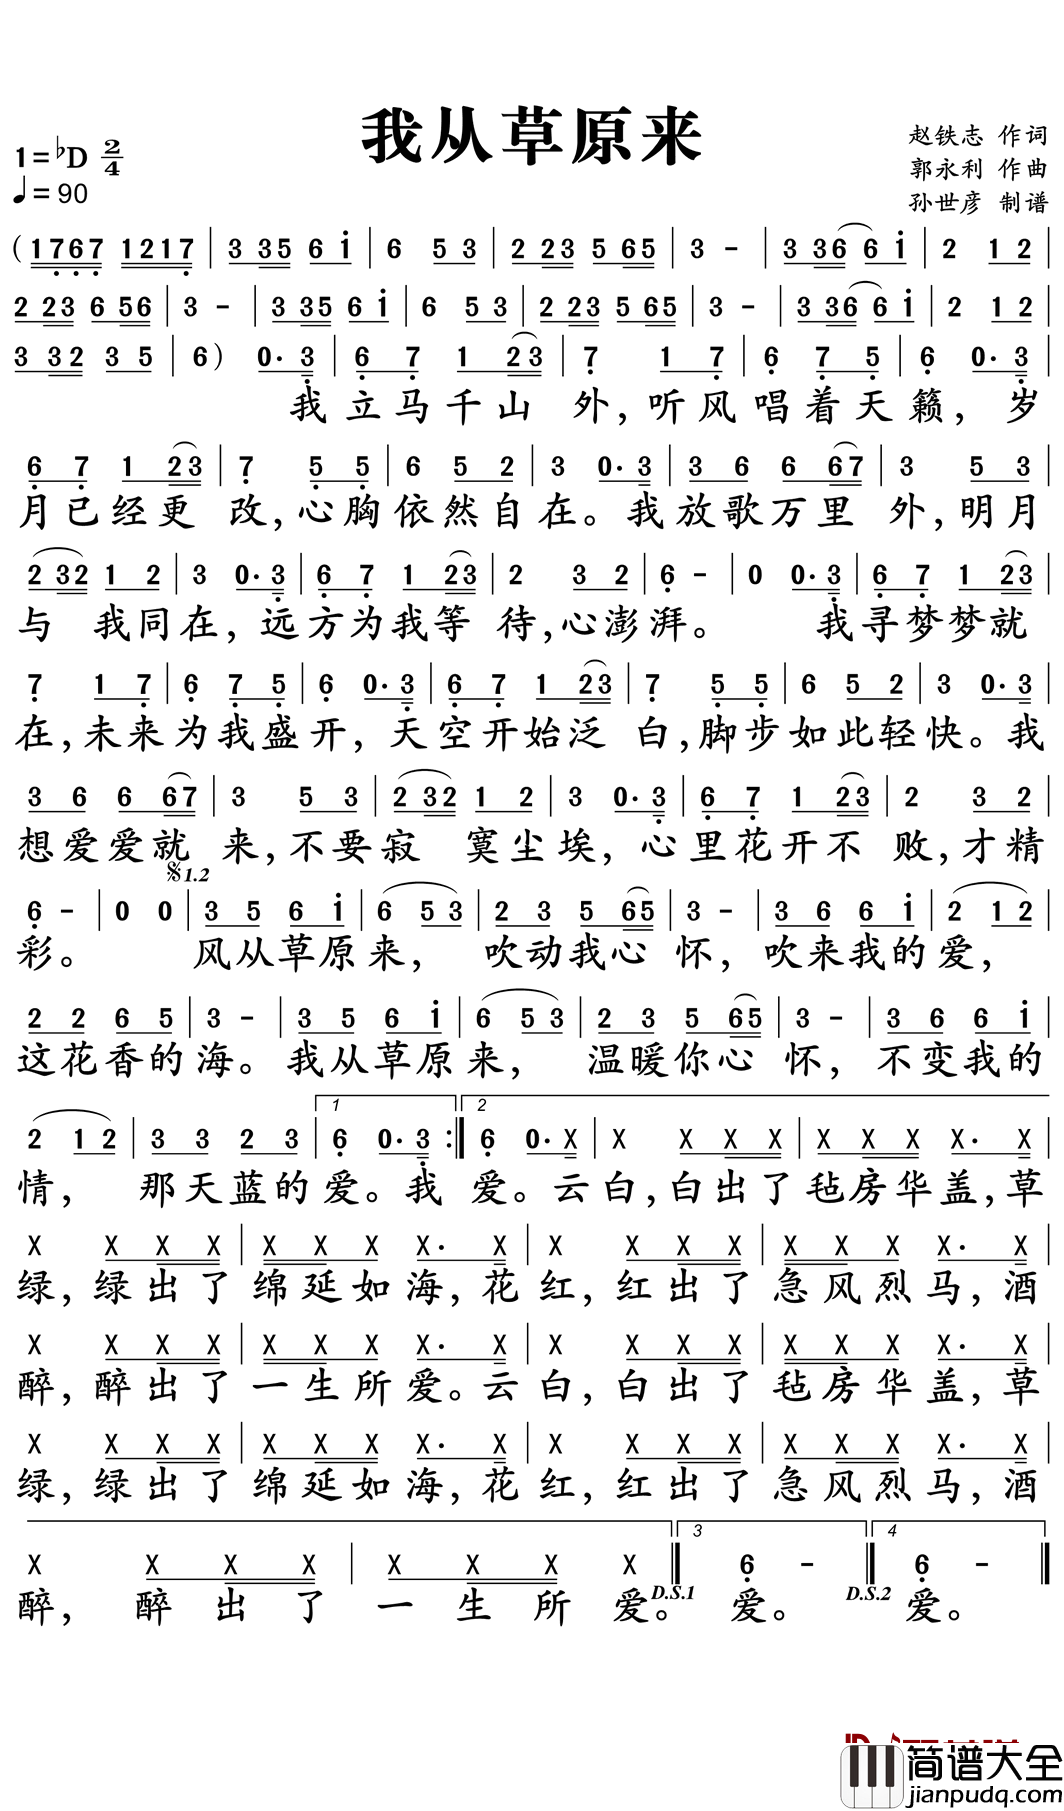 我从草原来
1=♭D 2/4
♩=90
赵铁志 作词
郭永利 作曲
孙世彦 制谱
(1767 1217 | 3 35 6 i | 6 5 3 | 2 23 5 65 | 3 - | 3 36 6 i | 2 1 2 |
2 23 6 56 | 3 - | 3 35 6 i | 6 5 3 | 2 23 5 65 | 3 - | 3 36 6 i | 2 1 2 |
3 32 3 5 | 6 ) 0· 3 | 6 7 1 23 | 7 1 7 | 6 7 5 | 6 0· 3 |
我立马千山 外,听风唱着天籁, 岁
6 7 1 23 | 7 5 5 | 6 5 2 | 3 0· 3 | 3 6 6 67 | 3 5 3 |
月已经更 改,心胸依然自在。我放歌万里 外,明月
2 32 1 2 | 3 0· 3 | 6 7 1 23 | 2 3 2 | 6 - | 0 0· 3 | 6 7 1 23 |
与 我同在, 远方为我等 待,心澎湃。 我寻梦梦就
7 1 7 | 6 7 5 | 6 0· 3 | 6 7 1 23 | 7 5 5 | 6 5 2 | 3 0· 3 |
在,未来为我盛开, 天空开始泛 白,脚步如此轻快。我
3 6 6 67 | 3 5 3 | 2 32 1 2 | 3 0· 3 | 6 7 1 23 | 2 3 2 |
想爱爱就 来,不要寂 寞尘埃, 心里花开不 败,才精
𝄋1.2
6 - | 0 0 | 3 5 6 i | 6 5 3 | 2 3 5 65 | 3 - | 3 6 6 i | 2 1 2 |
彩。 风从草原来, 吹动我心 怀, 吹来我的爱,
2 2 6 5 | 3 - | 3 5 6 i | 6 5 3 | 2 3 5 65 | 3 - | 3 6 6 i |
这花香的海。我从草原来, 温暖你心 怀, 不变我的
1 2
2 1 2 | 3 3 2 3 | 6 0· 3 :| 6 0· X | X X X X | X X X X· X |
情, 那天蓝的爱。我 爱。云白,白出了毡房华盖,草
X X X X | X X X X· X | X X X X | X X X X· X
绿,绿出了绵延如海,花红,红出了急风烈马,酒
X X X X | X X X X· X | X X X X | X X X X· X
醉,醉出了一生所爱。云白,白出了毡房华盖,草
X X X X | X X X X· X | X X X X | X X X X· X
绿,绿出了绵延如海,花红,红出了急风烈马,酒
3 4
X X X X | X X X X | 6 - | 6 - |
D.S.1 D.S.2
醉, 醉出了一生所爱。 爱。 爱。
简谱大全
jianpudq.com